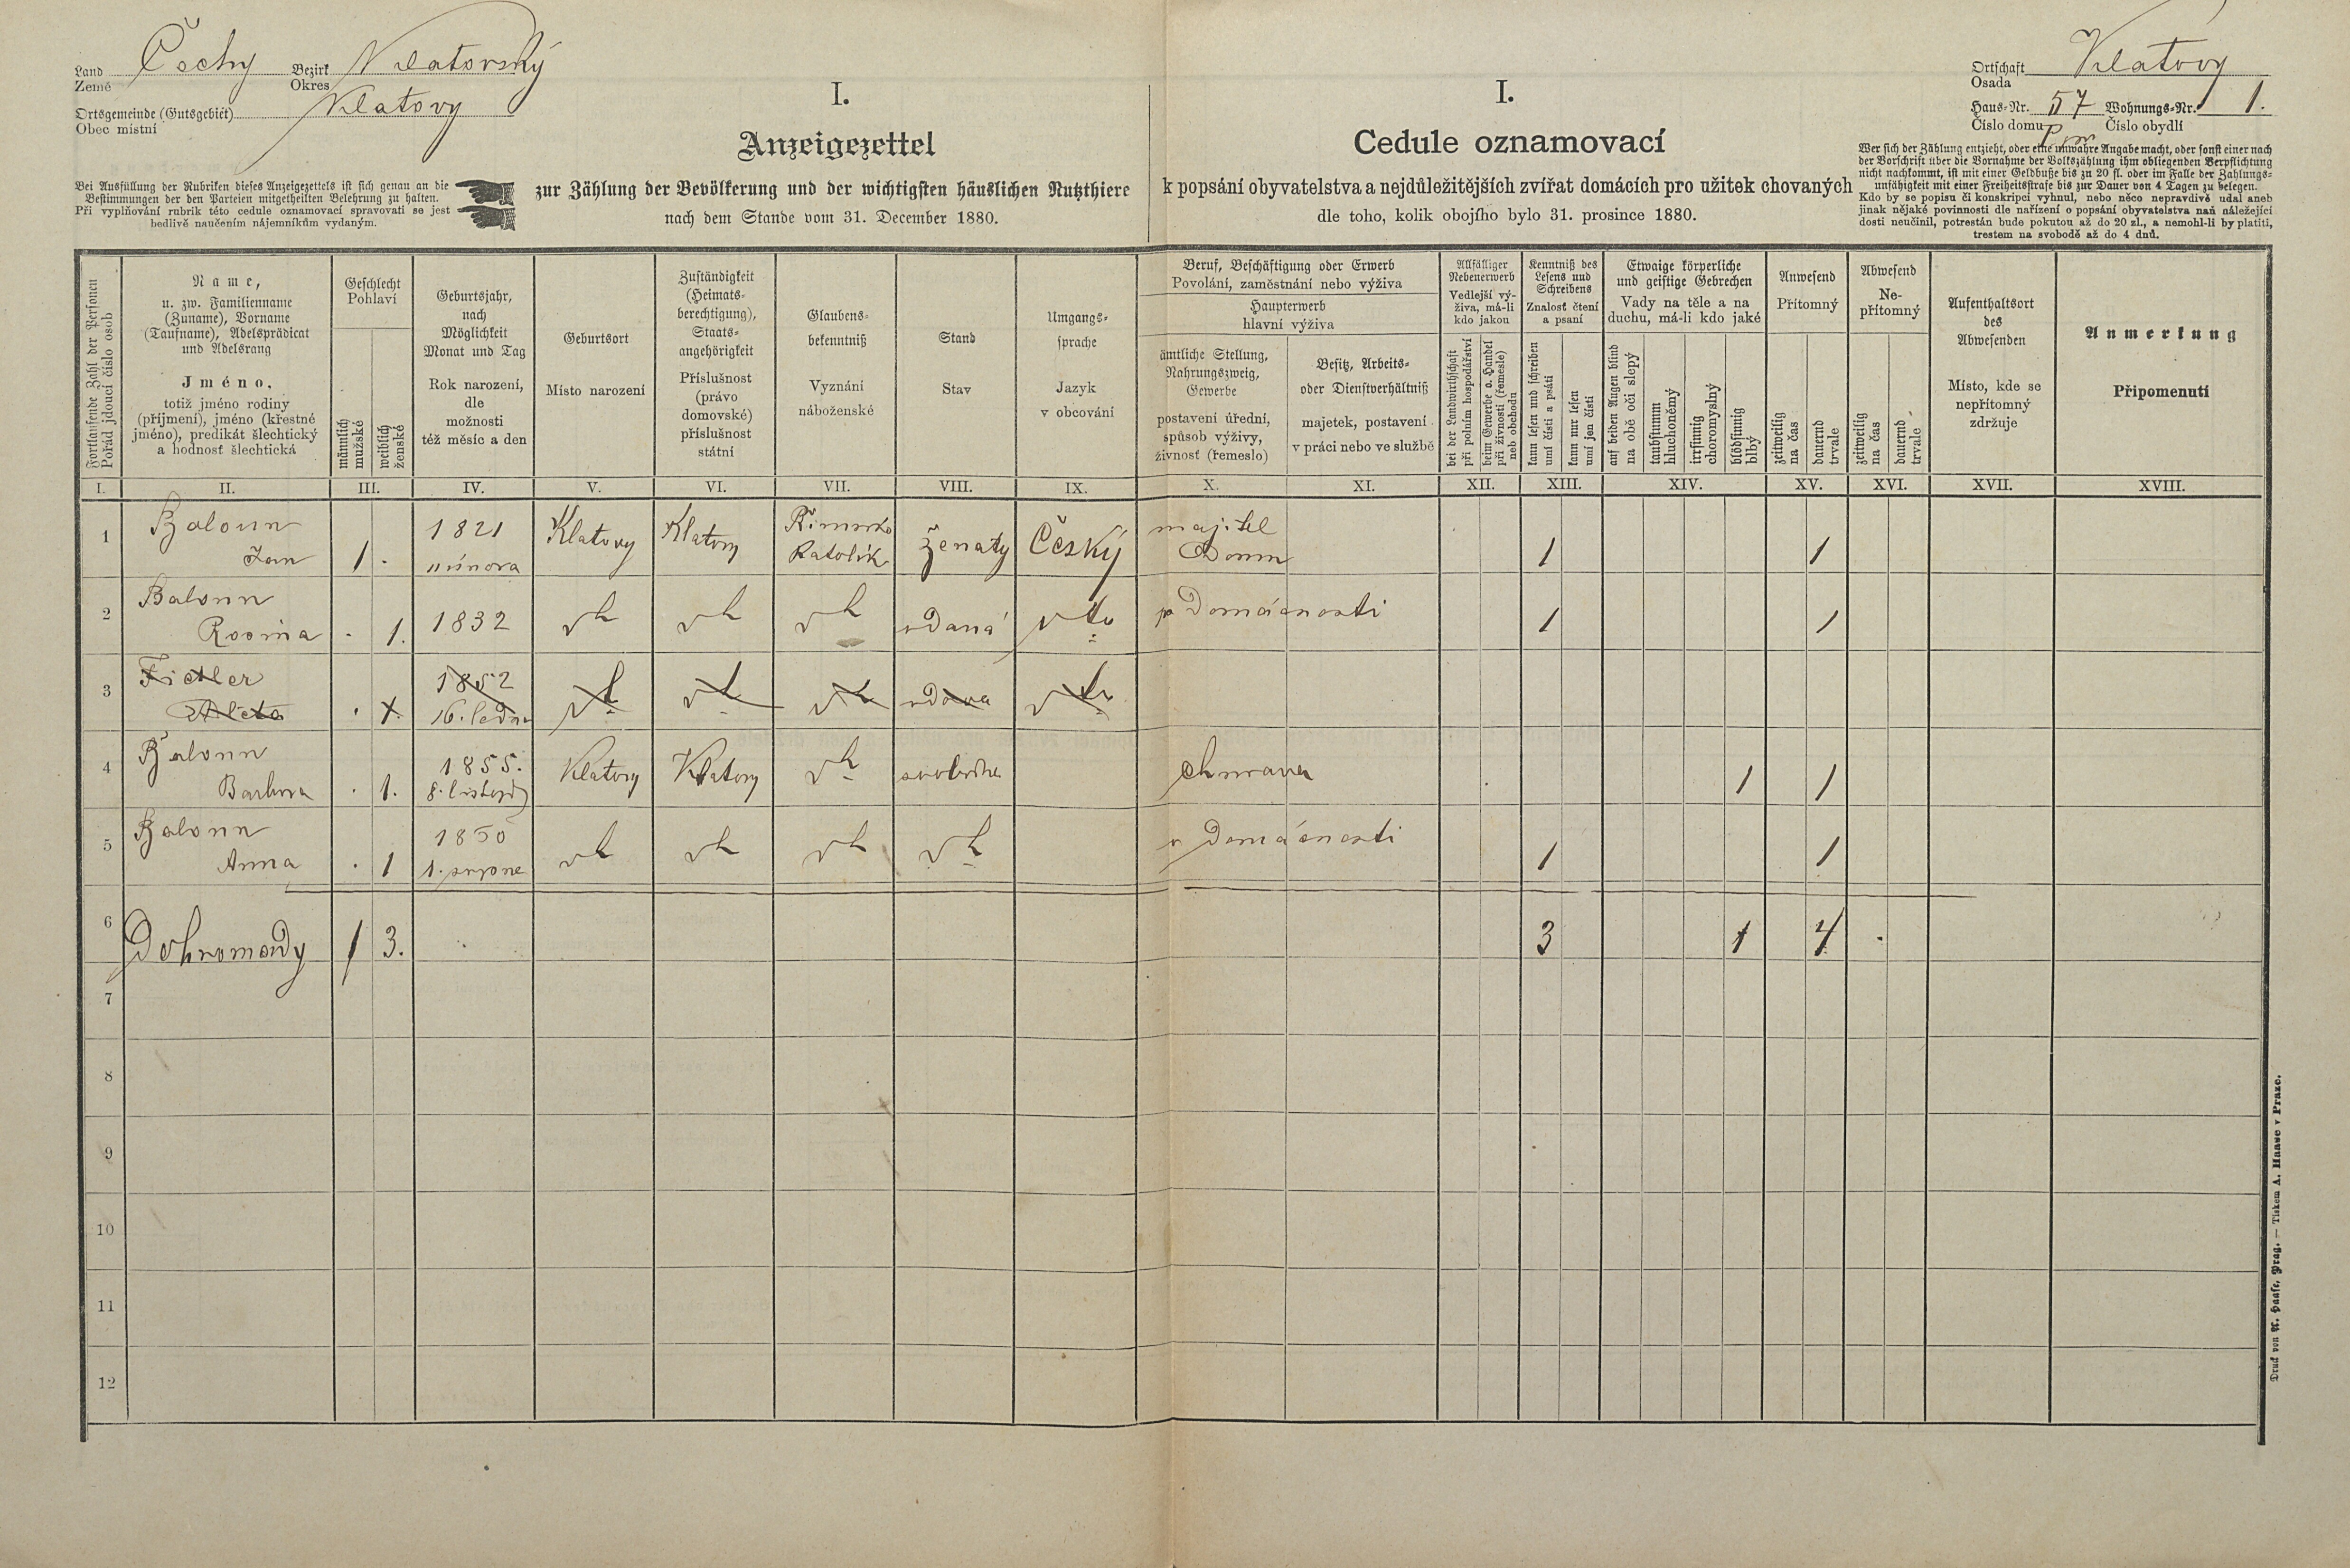 Land Čechy Bezirk Klatovský
Země Okres
Ortsgemeinde (Gutsgebiet) Klatovy
Obec místní
Bei Ausfüllung der Rubriken dieses Anzeigezettels ist sich genau an die
Bestimmungen der den Parteien mitgetheilten Belehrung zu halten.
Při vyplňování rubrik této cedule oznamovací spravovati se jest
bedlivě naučením nájemníkům vydaným.
I.
Anzeigezettel
zur Zählung der Bevölkerung und der wichtigsten häuslichen Nutzthiere
nach dem Stande vom 31. December 1880.
I.
Cedule oznamovací
k popsání obyvatelstva a nejdůležitějších zvířat domácích pro užitek chovaných
dle toho, kolik obojího bylo 31. prosince 1880.
Ortschaft Klatovy
Osada
Haus-Nr. 57 Wohnungs-Nr. 1.
Číslo domu Číslo obydlí
Wer sich der Zählung entzieht, oder eine unwahre Angabe macht, oder sonst einer nach
der Vorschrift über die Vornahme der Volkszählung ihm obliegenden Verpflichtung
nicht nachkommt, ist mit einer Geldbuße bis zu 20 fl. oder im Falle der Zahlungs-
unfähigkeit mit einer Freiheitsstrafe bis zur Dauer von 4 Tagen zu belegen.
Kdo by se popisu či konskripci vyhnul, nebo něco nepravdivě udal aneb
jinak nějaké povinnosti dle nařízení o popsání obyvatelstva naň náležející
dosti neučinil, potrestán bude pokutou až do 20 zl., a nemohl-li by platiti,
trestem na svobodě až do 4 dnů.
Fortlaufende Zahl der Personen
Pořád jdoucí číslo osob
Name,
u. zw. Familienname
(Zuname), Vorname
(Taufname), Adelsprädicat
und Adelsrang
Jméno,
totiž jméno rodiny
(příjmení), jméno (křestné
jméno), predikát šlechtický
a hodnosť šlechtická
Geschlecht
Pohlaví
männlich
mužské
weiblich
ženské
Geburtsjahr,
nach
Möglichkeit
Monat und Tag
Rok narození,
dle
možnosti
též měsíc a den
Geburtsort
Místo narození
Zuständigkeit
(Heimats-
berechtigung),
Staats-
angehörigkeit
Příslušnost
(právo
domovské)
příslušnost
státní
Glaubens-
bekenntniß
Vyznání
náboženské
Stand
Stav
Umgangs-
sprache
Jazyk
v obcování
Beruf, Beschäftigung oder Erwerb
Povolání, zaměstnání nebo výživa
Haupterwerb
hlavní výživa
ämtliche Stellung,
Nahrungszweig,
Gewerbe
postavení úřední,
spůsob výživy,
živnosť (řemeslo)
Besitz, Arbeits-
oder Dienstverhältniß
majetek, postavení
v práci nebo ve službě
Allfälliger
Nebenerwerb
Vedlejší vý-
živa, má-li
kdo jakou
bei der Landwirthschaft
při polním hospodářství
beim Gewerbe o. Handel
při živnosti (řemesle)
neb obchodu
Kenntniß des
Lesens und
Schreibens
Znalosť čtení
a psaní
kann lesen und schreiben
umí čísti a psáti
kann nur lesen
umí jen čísti
Etwaige körperliche
und geistige Gebrechen
Vady na těle a na
duchu, má-li kdo jaké
auf beiden Augen blind
na obě oči slepý
taubstumm
hluchoněmý
irrsinnig
choromyslný
blödsinnig
blbý
Anwesend
Přítomný
zeitweilig
na čas
dauernd
trvale
Abwesend
Ne-
přítomný
zeitweilig
na čas
dauernd
trvale
Aufenthaltsort
des
Abwesenden
Místo, kde se
nepřítomný
zdržuje
Anmerkung
Připomenutí
I. II. III. IV. V. VI. VII. VIII. IX. X. XI. XII. XIII. XIV. XV. XVI. XVII. XVIII.
1 Baloun 1821 Klatovy Klatovy Římsko majitel
Jan 1 . února Katolík ženatý Český Domu 1 1
2 Baloun
Rosina . 1. 1832 vdaná Domácnosti 1 1
3 Fiedler 1852
. 1. 16. ledna vdova
4 Baloun 1855. Klatovy Klatovy svobodna
Barbora . 1. 8. listopd 1 1
5 Baloun 1850 v Domácnosti
Anna . 1 1. srpna 1 1
6 Dohromady 1 3. 3 1 4 .
7
8
9
10
11
12
Druck von A. Haase, Prag. — Tiskem A. Haase v Praze.